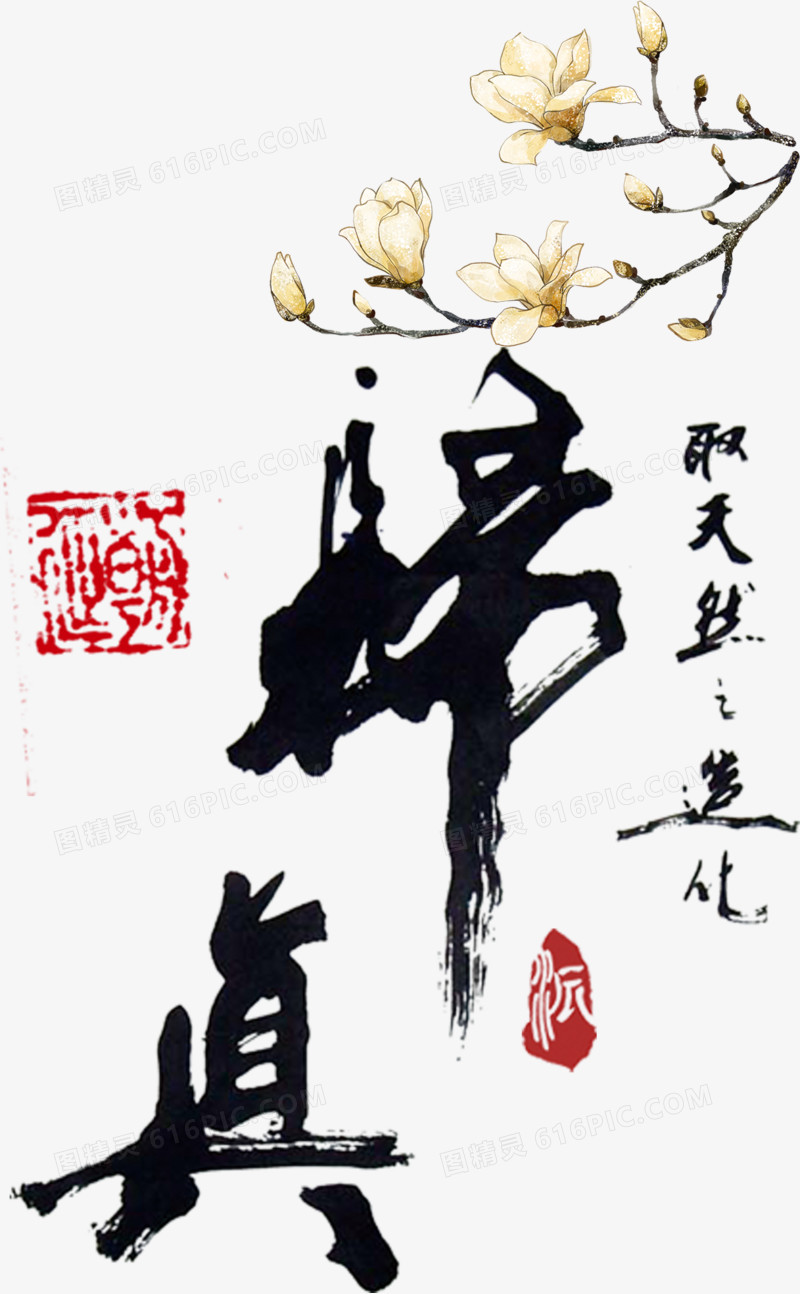 歸真
取天然之造化
派
图精灵 616PIC.COM
图精灵 616PIC.COM
图精灵 616PIC.COM
图精灵 616PIC.COM
图精灵 616PIC.COM
图精灵 616PIC.COM
图精灵 616PIC.COM
图精灵 616PIC.COM